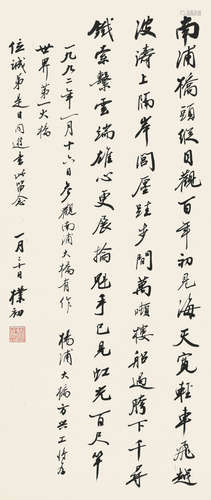 南浦橋頭縱目觀百年初見海天寬輕車飛越
波濤上隔岸囘屋跬步間萬噸樓船過胯下千尋
鐵索繫雲端雄心更展掄魁手已見虹光百尺竿
一九九二年一月十六日參觀南浦大橋有作 楊浦大橋方興工將為
世界第一大橋
位誠弟是日同遊書此留念
一月三十日 樸初